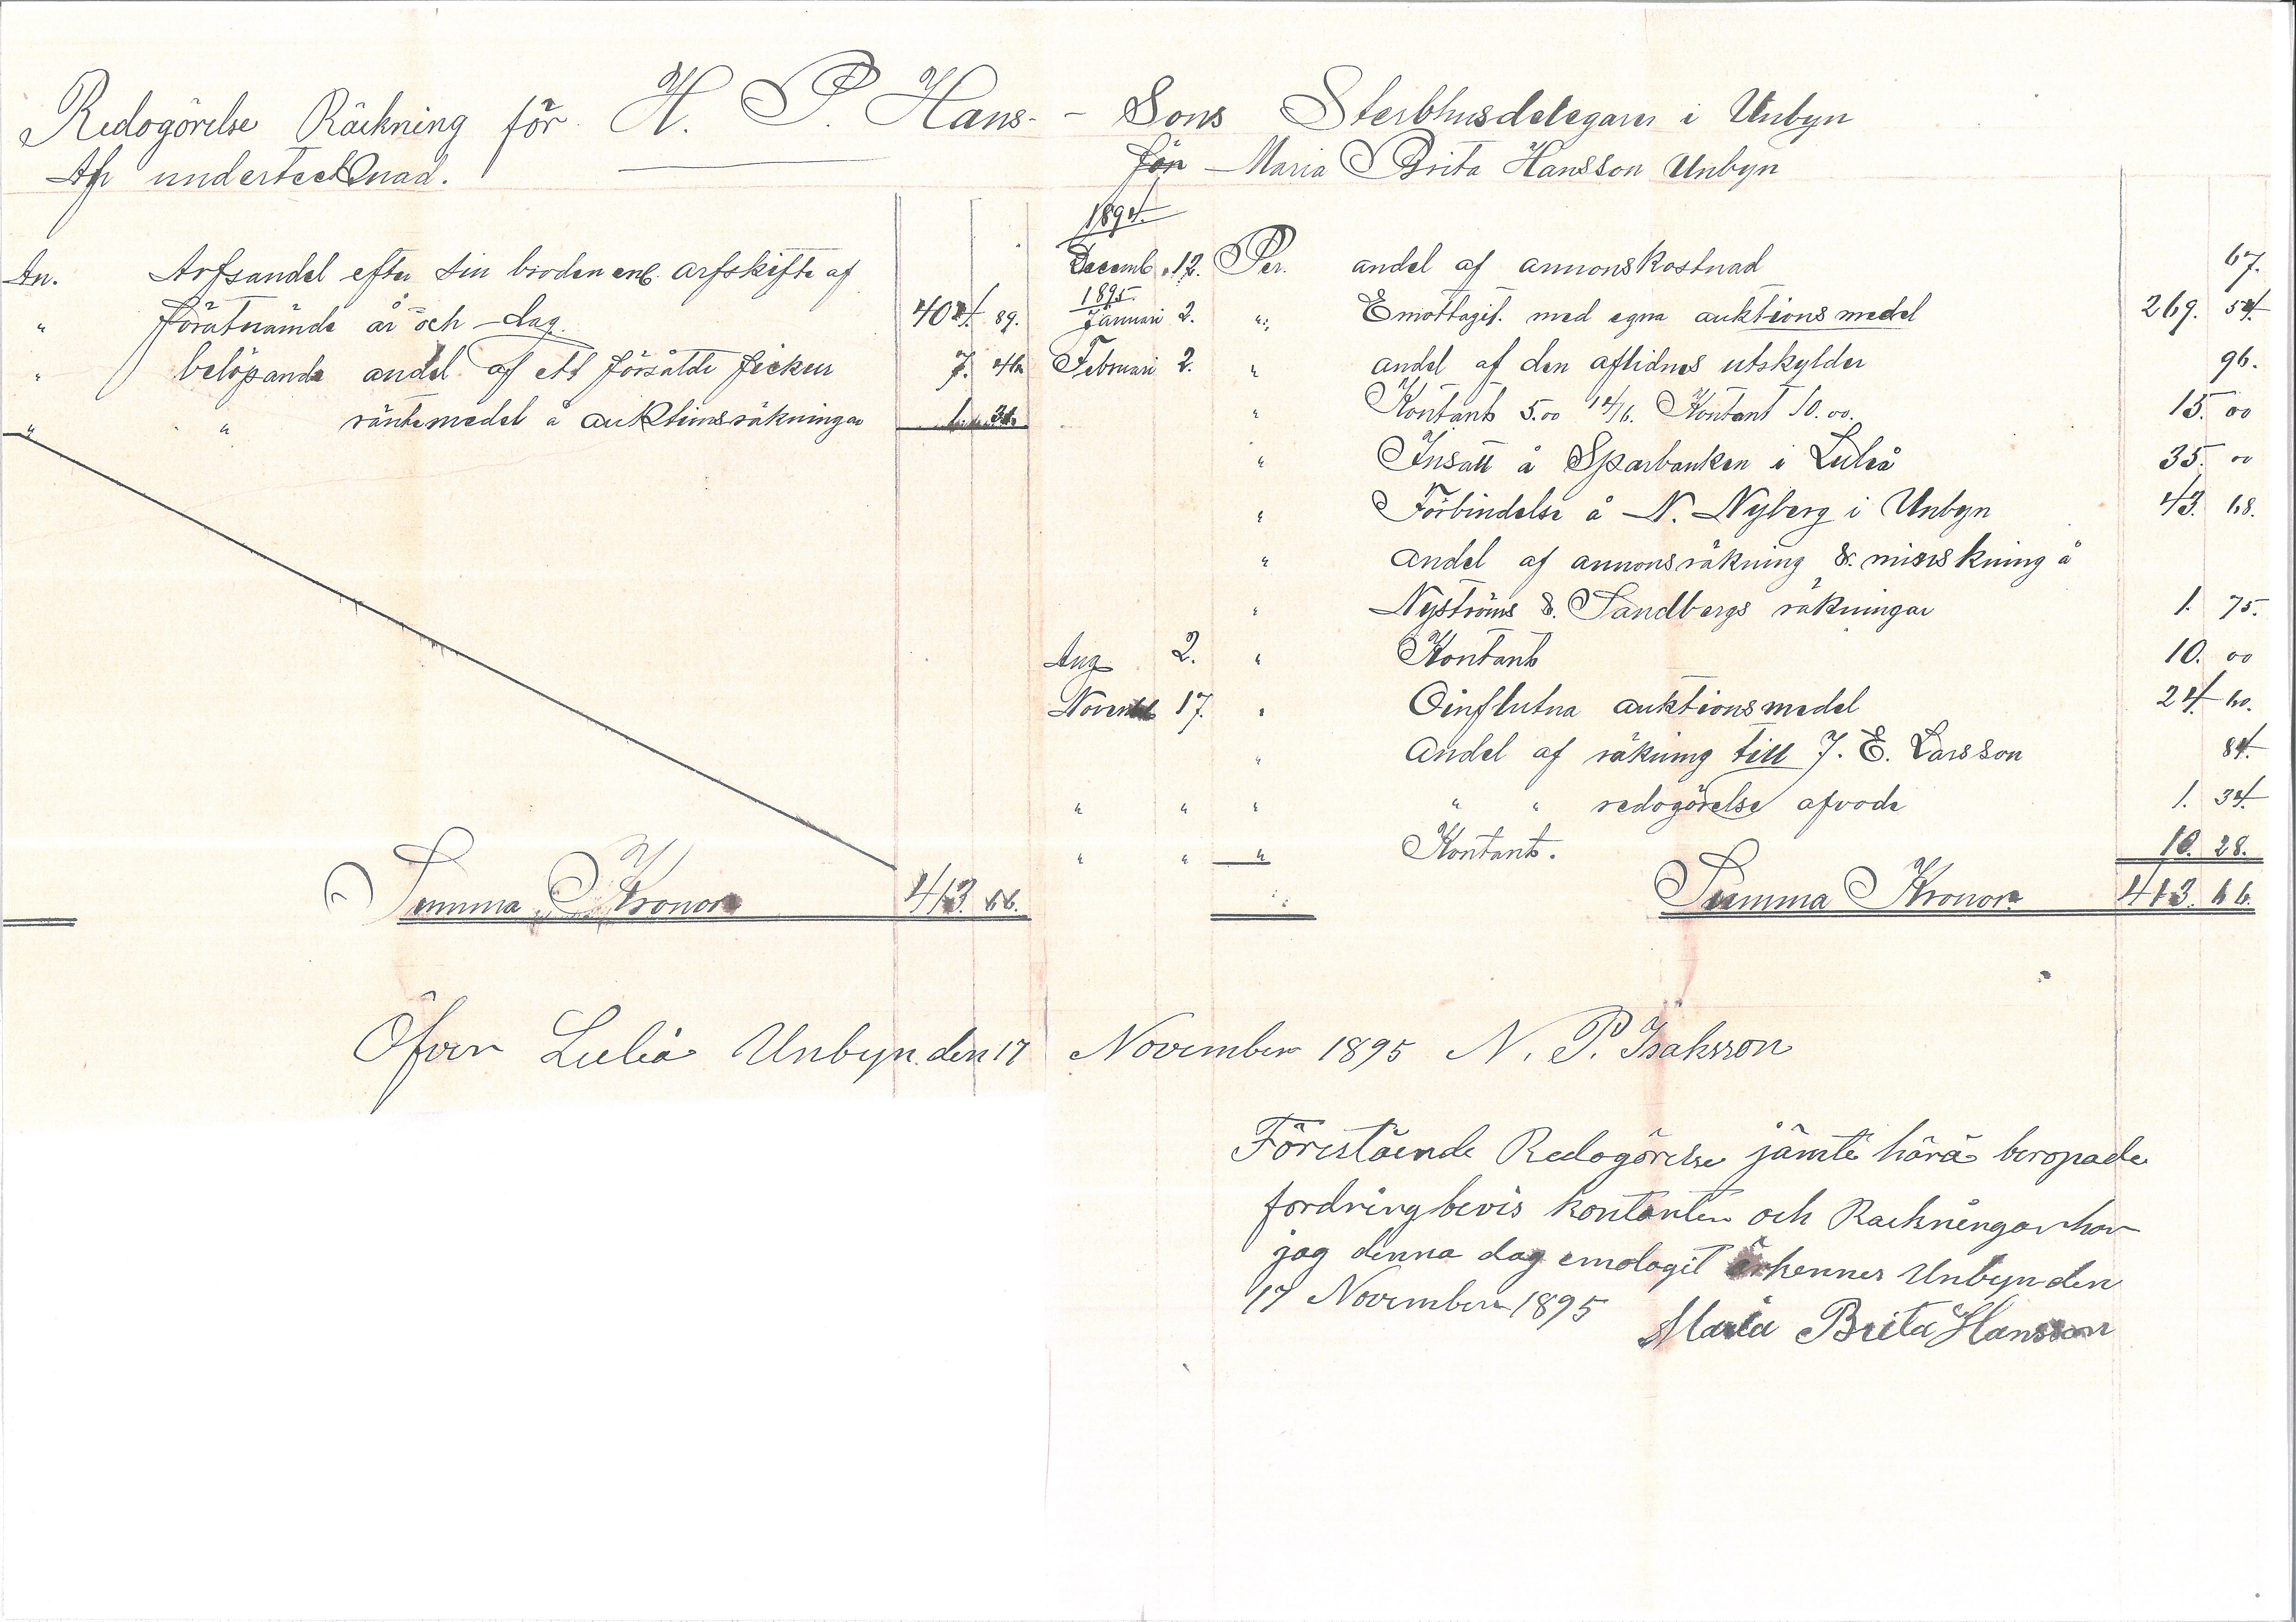 Redogörelse Räckning för H. P. Hans- - Sons Sterbhusdelegarer i Unbyn
Af undertecknad. för Maria Brita Hansson Unbyn
1894.
An. Arfsandel efter sin broder enl. arfskifte af
" föratnämde år och dag. 404. 89.
" belöpande andel af ett försålde fickur 7. 46.
" " räntemedel å auktionsräkningar 1. 31.
Summa Kronor 413. 66.
Decemb. 12. Per. andel af annonskostnad 67.
1895.
Januari 2. " Emottagit. med egna auktionsmedel 269. 54.
Februari 2. " andel af den aflidnes utskylder 96.
" Kontant 5.00 14/6. Kontant 10.00. 15. 00
" Insatt å Sparbanken i Luleå 35. 00
" Förbindelse å N. Nyberg i Unbyn 43. 68.
" andel af annonsräkning & minskning å
" Nyströms & Sandbergs räkningar 1. 75.
Aug 2. " Kontant 10. 00
Novemb 17. " Oinflutna auktionsmedel 24. 60.
" Andel af räkning till J. E. Larsson 84.
" " " " " redogörelse afvode 1. 34.
" " " Kontant. 10. 28.
Summa Kronor 413. 66.
Öfver Luleå Unbyn den 17 November 1895 N. P. Isaksson
Förestående Redogörelse jämte härå beropade
fordringbevis kontanter och Rackningar har
jag denna dag emotagit ärkennes Unbyn den
17 November 1895
Maria Brita Hansson